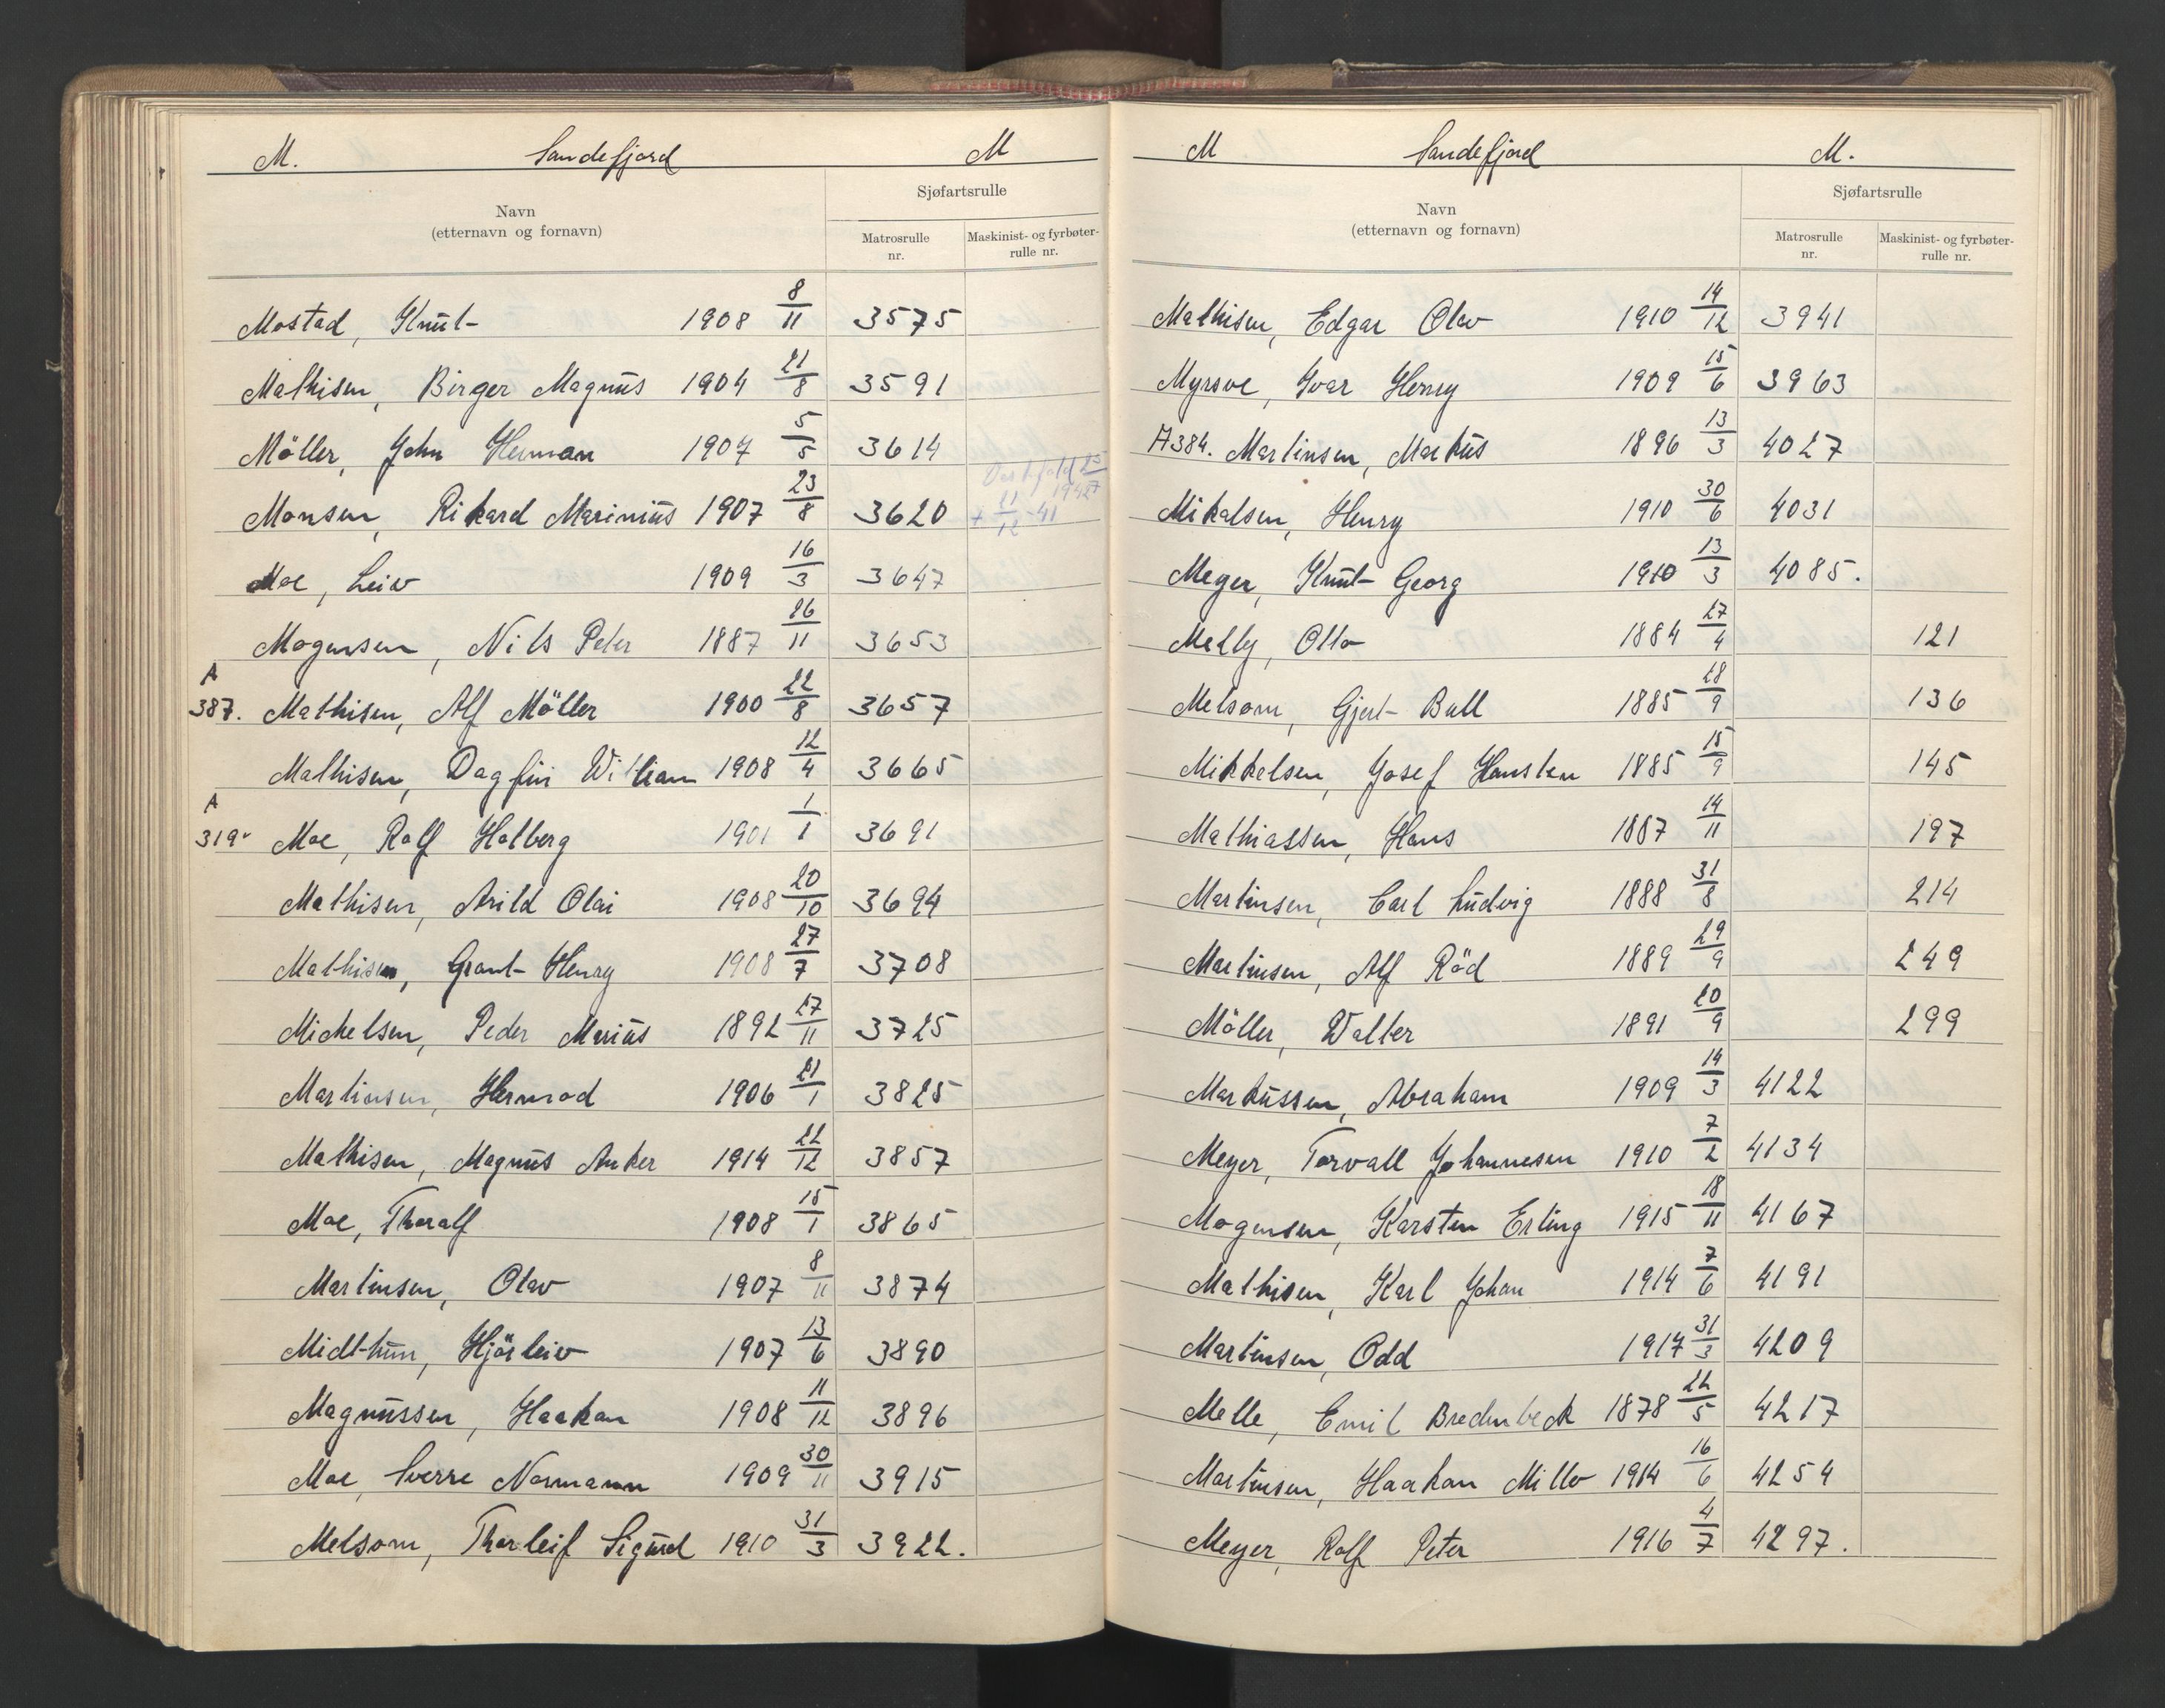 M. Sandefjord M
Navn
(etternavn og fornavn)
Sjøfartsrulle
Matrosrulle nr.
Maskinist- og fyrbøter-rulle nr.
Mostad, Knut 1908 8/11 3575
Mathisen, Birger Magnus 1904 21/8 3591
Möller, John Herman 1907 5/5 3614
Monsen, Rikard Marinius 1907 23/8 3620 + 11/12-41
Moe, Leiv 1909 16/3 3647
Mogensen, Nils Peter 1887 26/11 3653
A 387. Mathisen, Alf Möller 1900 22/8 3657
Mathisen, Dagfin William 1908 12/4 3665
A 319. Moe, Rolf Holberg 1901 1/1 3691
Mathisen, Arild Olai 1908 20/10 3694
Mathisen, Grant Henry 1908 27/7 3708
Mickelsen, Peder Marius 1892 27/11 3725
Martinsen, Hermod 1906 21/1 3825
Mathisen, Magnus Anker 1914 22/12 3857
Moe, Thoralf 1908 15/1 3865
Martinsen, Olav 1907 8/11 3874
Midthun, Hjörleiv 1907 13/6 3890
Magnussen, Haakon 1908 11/12 3896
Moe, Sverre Normann 1909 30/11 3915
Melsom, Thorleif Sigurd 1910 31/3 3922.
M Sandefjord M.
Navn
(etternavn og fornavn)
Sjøfartsrulle
Matrosrulle nr.
Maskinist- og fyrbøter-rulle nr.
Mathisen, Edgar Olav 1910 14/12 3941
Myrsve, Ivar Henry 1909 15/6 3963
A384. Martinsen, Markus 1896 13/3 4027
Mikalsen, Henry 1910 30/6 4031
Meyer, Knut Georg 1910 13/3 4085.
Melby, Otto 1884 27/4 121
Melsom, Gjert Bull 1885 28/9 136
Mikkelsen, Josef Hansten 1885 15/9 145
Mathiassen, Hans 1887 14/11 197
Martinsen, Carl Ludvig 1888 31/8 214
Martinsen, Alf Röd 1889 29/9 249
Möller, Walter 1891 20/9 299
Markussen, Abraham 1909 14/3 4122
Meyer, Torvall Johannesen 1910 7/2 4134
Mogensen, Karsten Erling 1915 18/11 4167
Mathisen, Karl Johan 1914 7/6 4191
Martinsen, Odd 1917 31/3 4209
Melle, Emil Bredenbeck 1878 22/5 4217
Martinsen, Haakon Millo 1914 16/6 4254
Meyer, Rolf Peter 1916 4/7 4297.